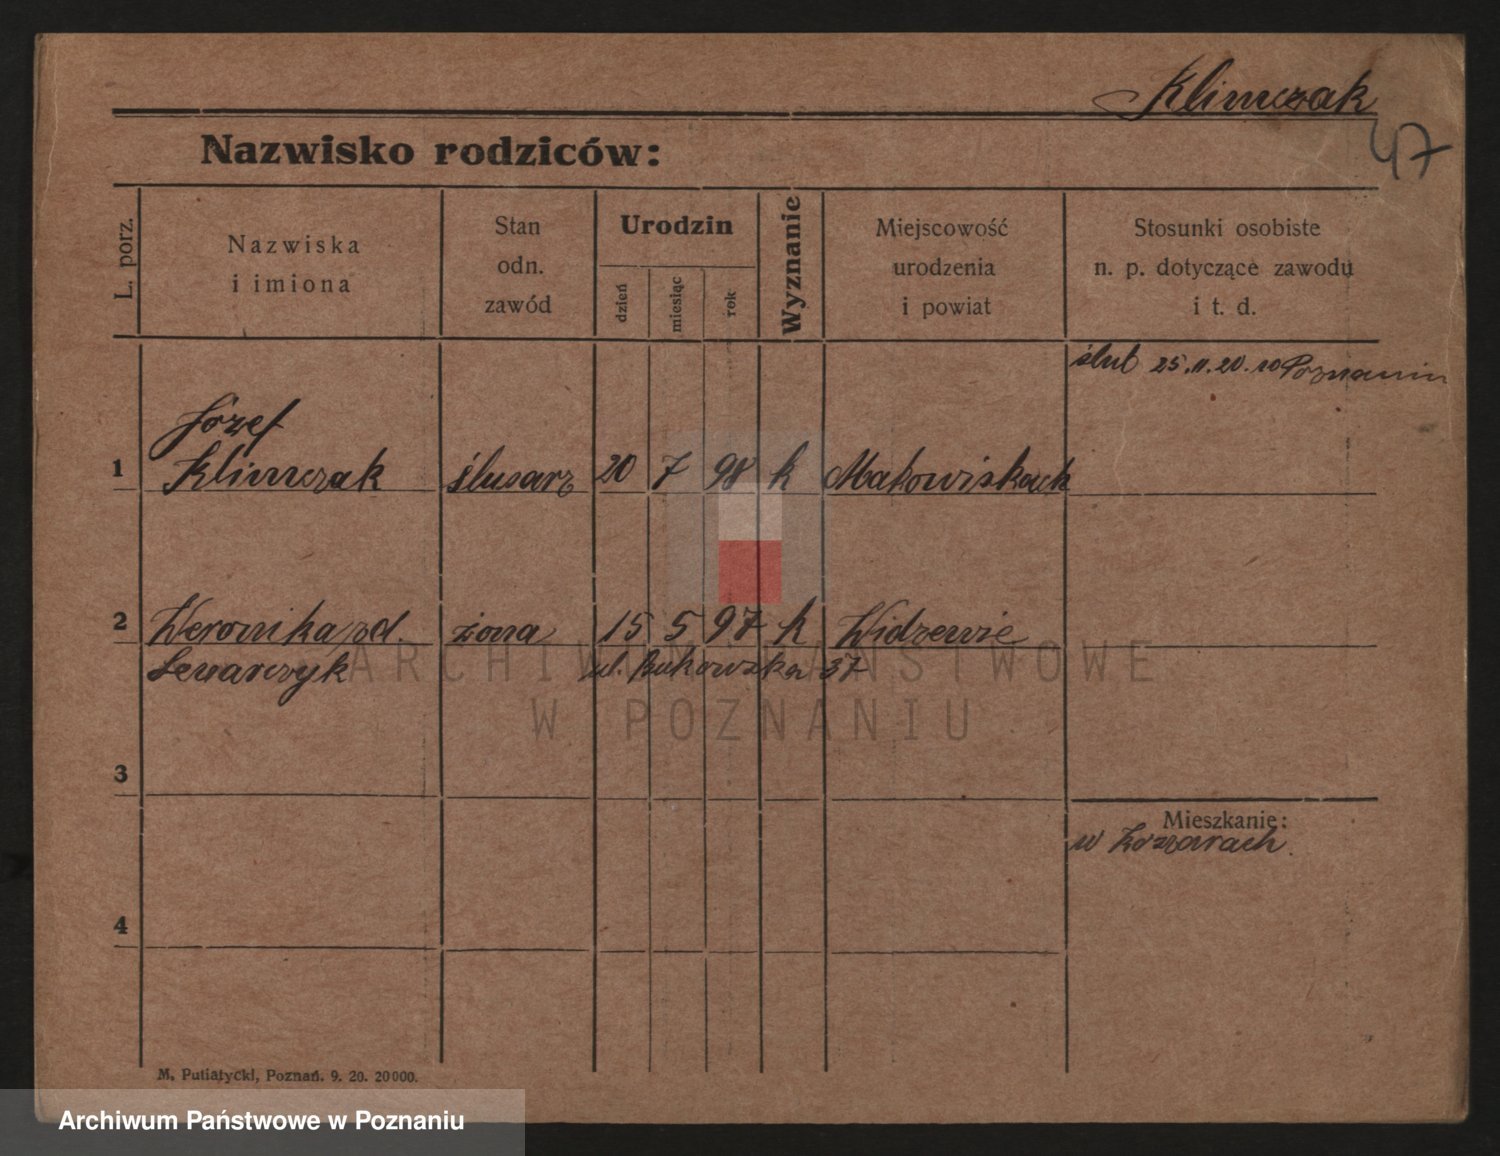 Klimczak
47
Nazwisko rodziców:
L. porz.
Nazwiska
i imiona
Stan
odn.
zawód
Urodzin
dzień
miesiąc
rok
Wyznanie
Miejscowość
urodzenia
i powiat
Stosunki osobiste
n. p. dotyczące zawodu
i t. d.
ślub 25.11.20. w Poznaniu
Józef
1 Klimczak ślusarz 20 7 98 k Makowiskach
2 Weronika zd. żona 15 5 97 k Widzewie
ul. Bukowska 37
3
Mieszkanie:
4
M. Putiatycki, Poznań. 9. 20. 20000.
ARCHIWUM PAŃSTWOWE
W POZNANIU
Archiwum Państwowe w Poznaniu